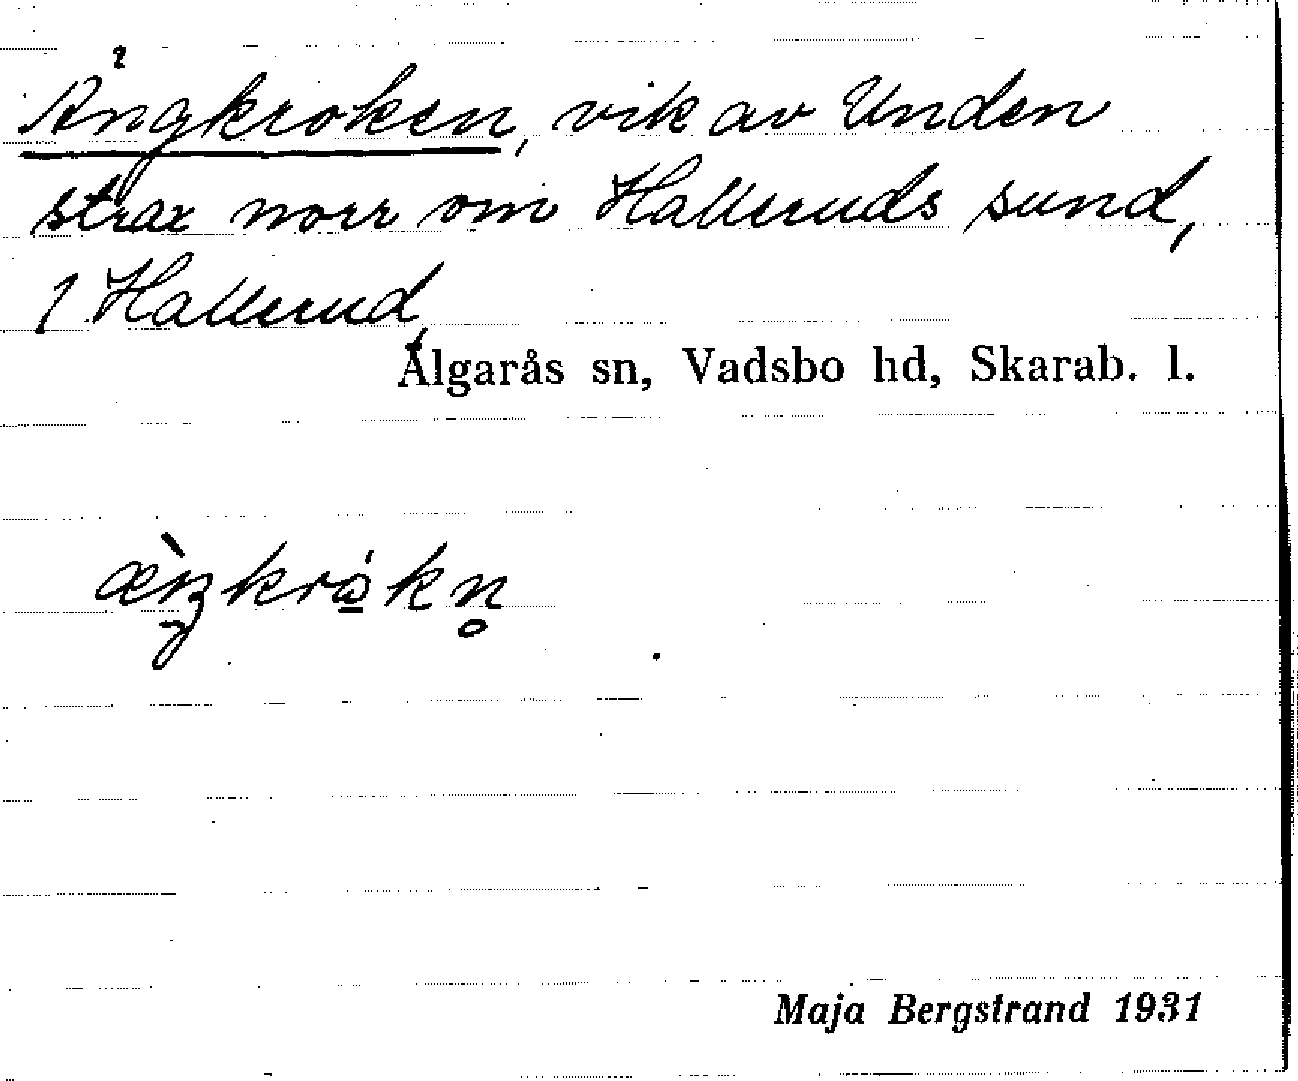 Ängkroken, vik av Unden
strax norr om Halleruds sund,
1 Hallerud,
Älgarås sn, Vadsbo hd, Skarab. l.
Maja Bergstrand 1931